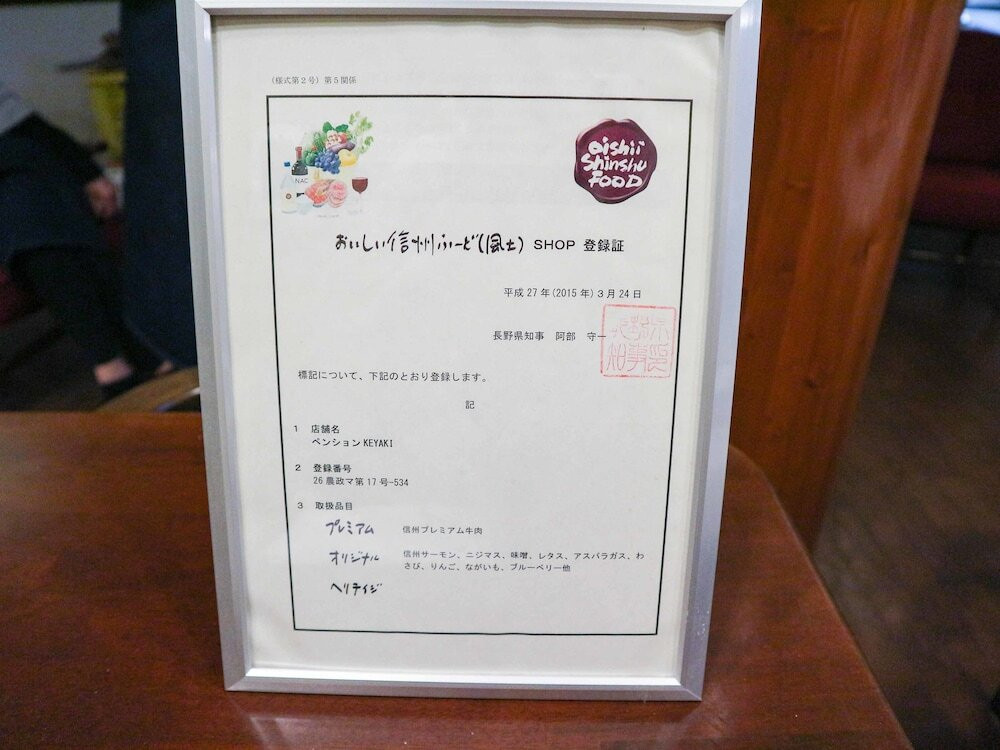 (様式第2号) 第5関係
NAC
oishii
Shinshu
FOOD
おいしい信州ふーど(風土) SHOP 登録証
平成27年(2015年)3月24日
長野県知事 阿部 守一
標記について、下記のとおり登録します。
記
1 店舗名
ペンションKEYAKI
2 登録番号
26農政マ第17号-534
3 取扱品目
プレミアム 信州プレミアム牛肉
オリジナル 信州サーモン、ニジマス、味噌、レタス、アスパラガス、わ
さび、りんご、ながいも、ブルーベリー他
ヘリテイジ